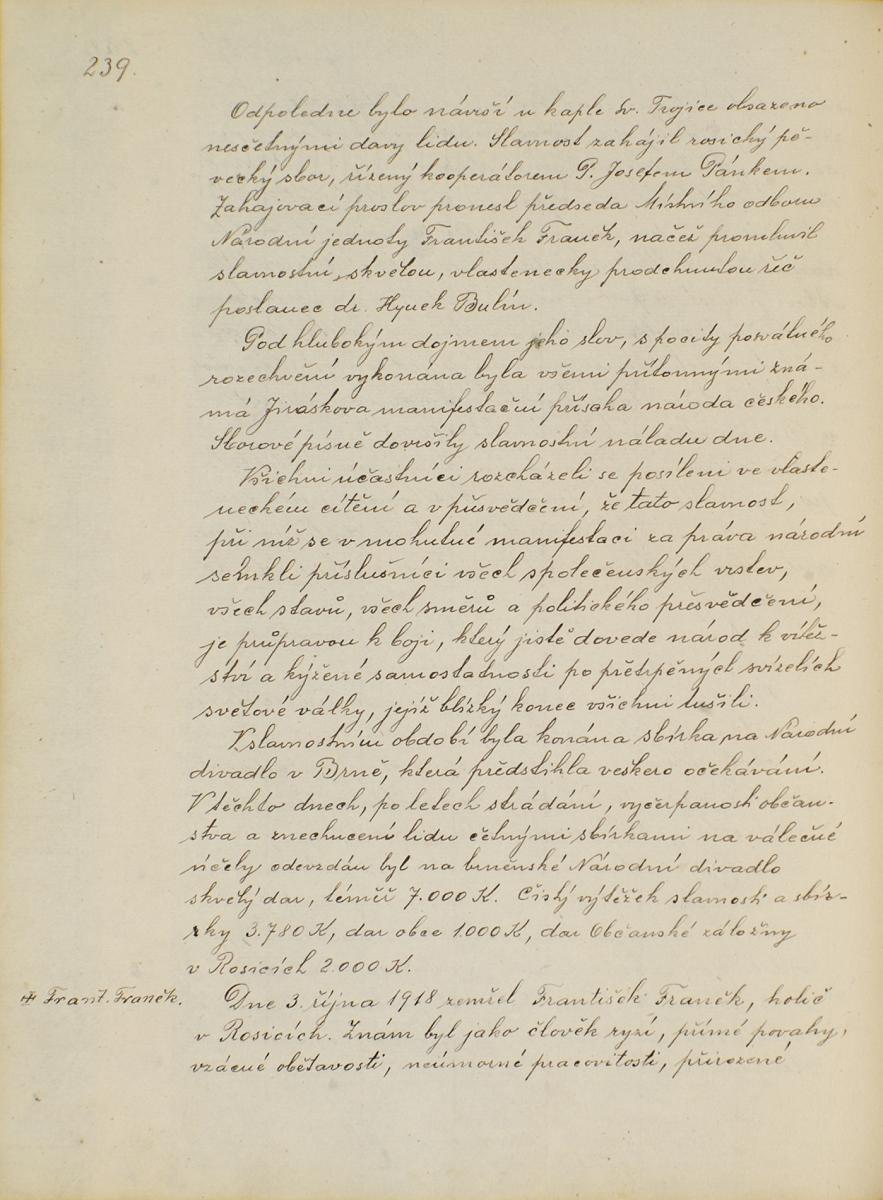 239.
Odpoledne bylo návrší u kaple sv. Trojice obsazeno
nesčetnými davy lidu. Slavnost zahájil rosický pě-
vecký sbor, řízený kooperátorem P. Josefem Pánkem.
Zahajovací proslov pronesl předseda Místního odboru
Národní jednoty František Franěk, načež promluvil
slavnostní, skvělou, vlastenecky prodchnutou řeč
poslanec dr. Hynek Bulín.
Pod hlubokým dojmem jeho slov, s pocity posvátného
rozechvění vykonána byla všemi přítomnými zná-
má Jiráskova manifestační přísaha národa českého.
Sborové písně dovršily slavnostní náladu dne.
Všichni účastníci rozcházeli se posíleni ve vlaste-
neckém cítění a v přesvědčení, že tato slavnost,
při níž se v mohutné manifestaci za práva národní
semkli příslušníci všech společenských vrstev,
všech stavů, všech směrů a politického přesvědčení,
je průpravou k boji, který jistě dovede národ k vítěz-
ství a kýžené samostatnosti po přetrpěných svízelích
světové války, jejíž blízký konec všichni tušili.
V slavnostním období byla konána sbírka na Národní
divadlo v Brně, která předstihla veškero očekávání.
V těchto dnech, po letech strádání, vyčerpanosti občan-
stva a znechucení lidu četnými sbírkami na válečné
účely odevzdán byl na brněnské Národní divadlo
skvělý dar, téměř 7.000 K. Čistý výtěžek slavnosti a sbír-
ky 3.780 K, dar obce 1.000 K, dar Občanské záložny
v Rosicích 2.000 K.
‡ Frant. Franěk.
Dne 3. října 1918 zemřel František Franěk, holič
v Rosicích. Znám byl jako člověk ryzí, přímé povahy,
vzácné obětavosti, neúmorné pracovitosti, přirozené